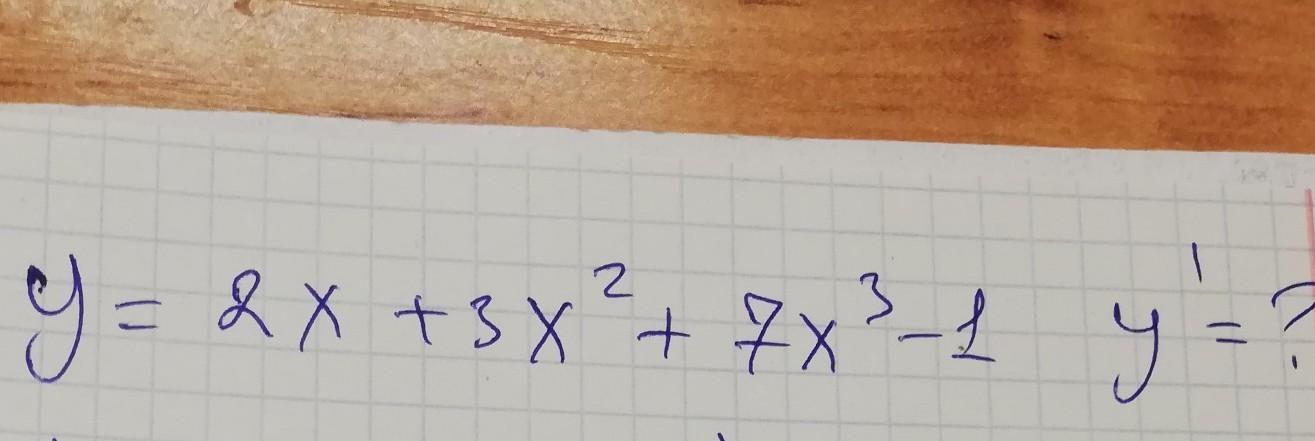 y = 2x + 3x² + 7x³ - 1 y' = ?